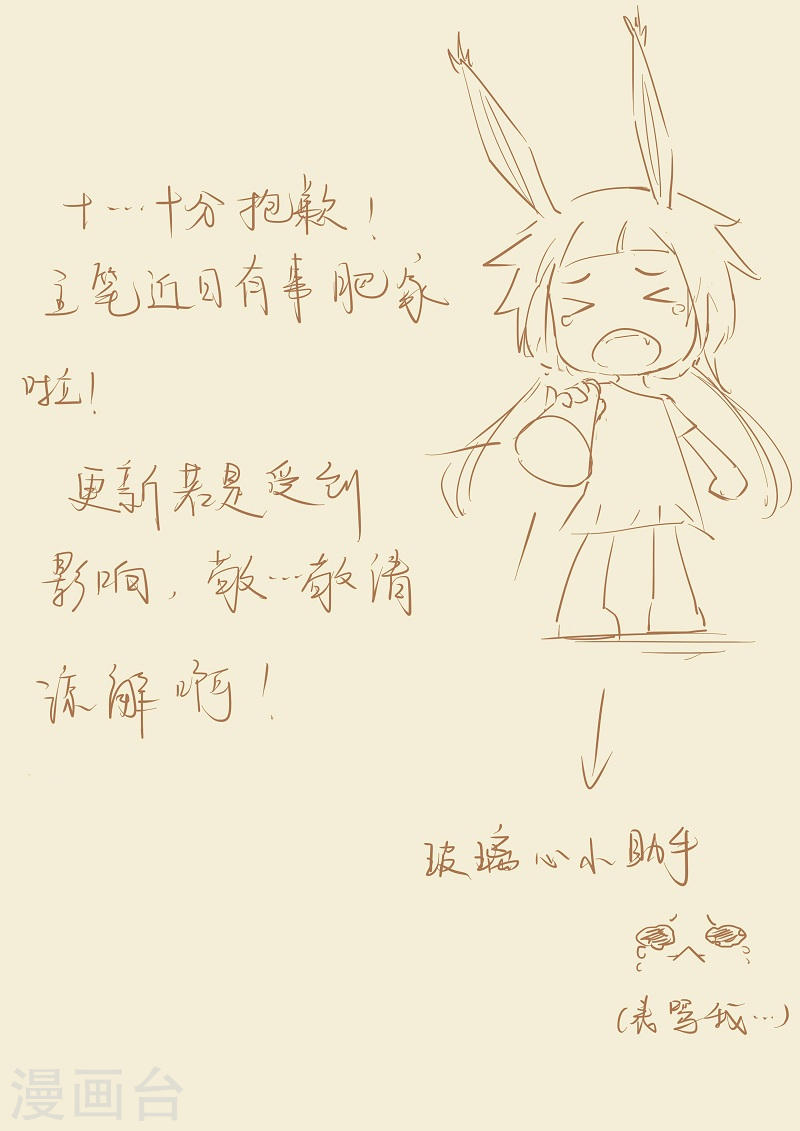 十…十分抱歉！
主笔近日有事肥家
啦！
更新若是受到
影响，敬…敬请
谅解啊！
玻璃心小助手
(表骂我…)
漫画台